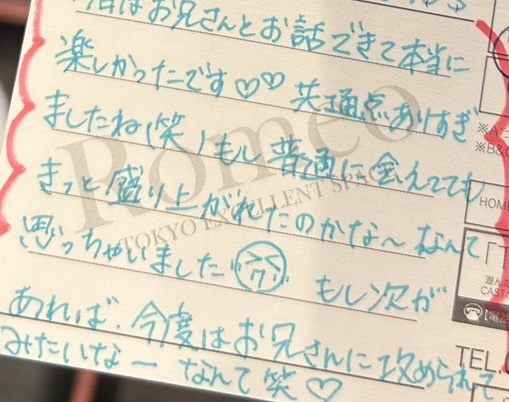 はお兄さんとお話できて本当に
楽しかったです♡♡ 共通点ありすぎ
ましたね(笑)もし普通に会えてても
きっと盛り上がれたのかな〜なんて
思っちゃいました もし次が
あれば、今度はお兄さんに攻められて
みたいなー なんて笑♡
Romeo
TOKYO EXCELLENT SPACE
※A:
※B&
HOME
「T
遊ん
CAST
TEL.